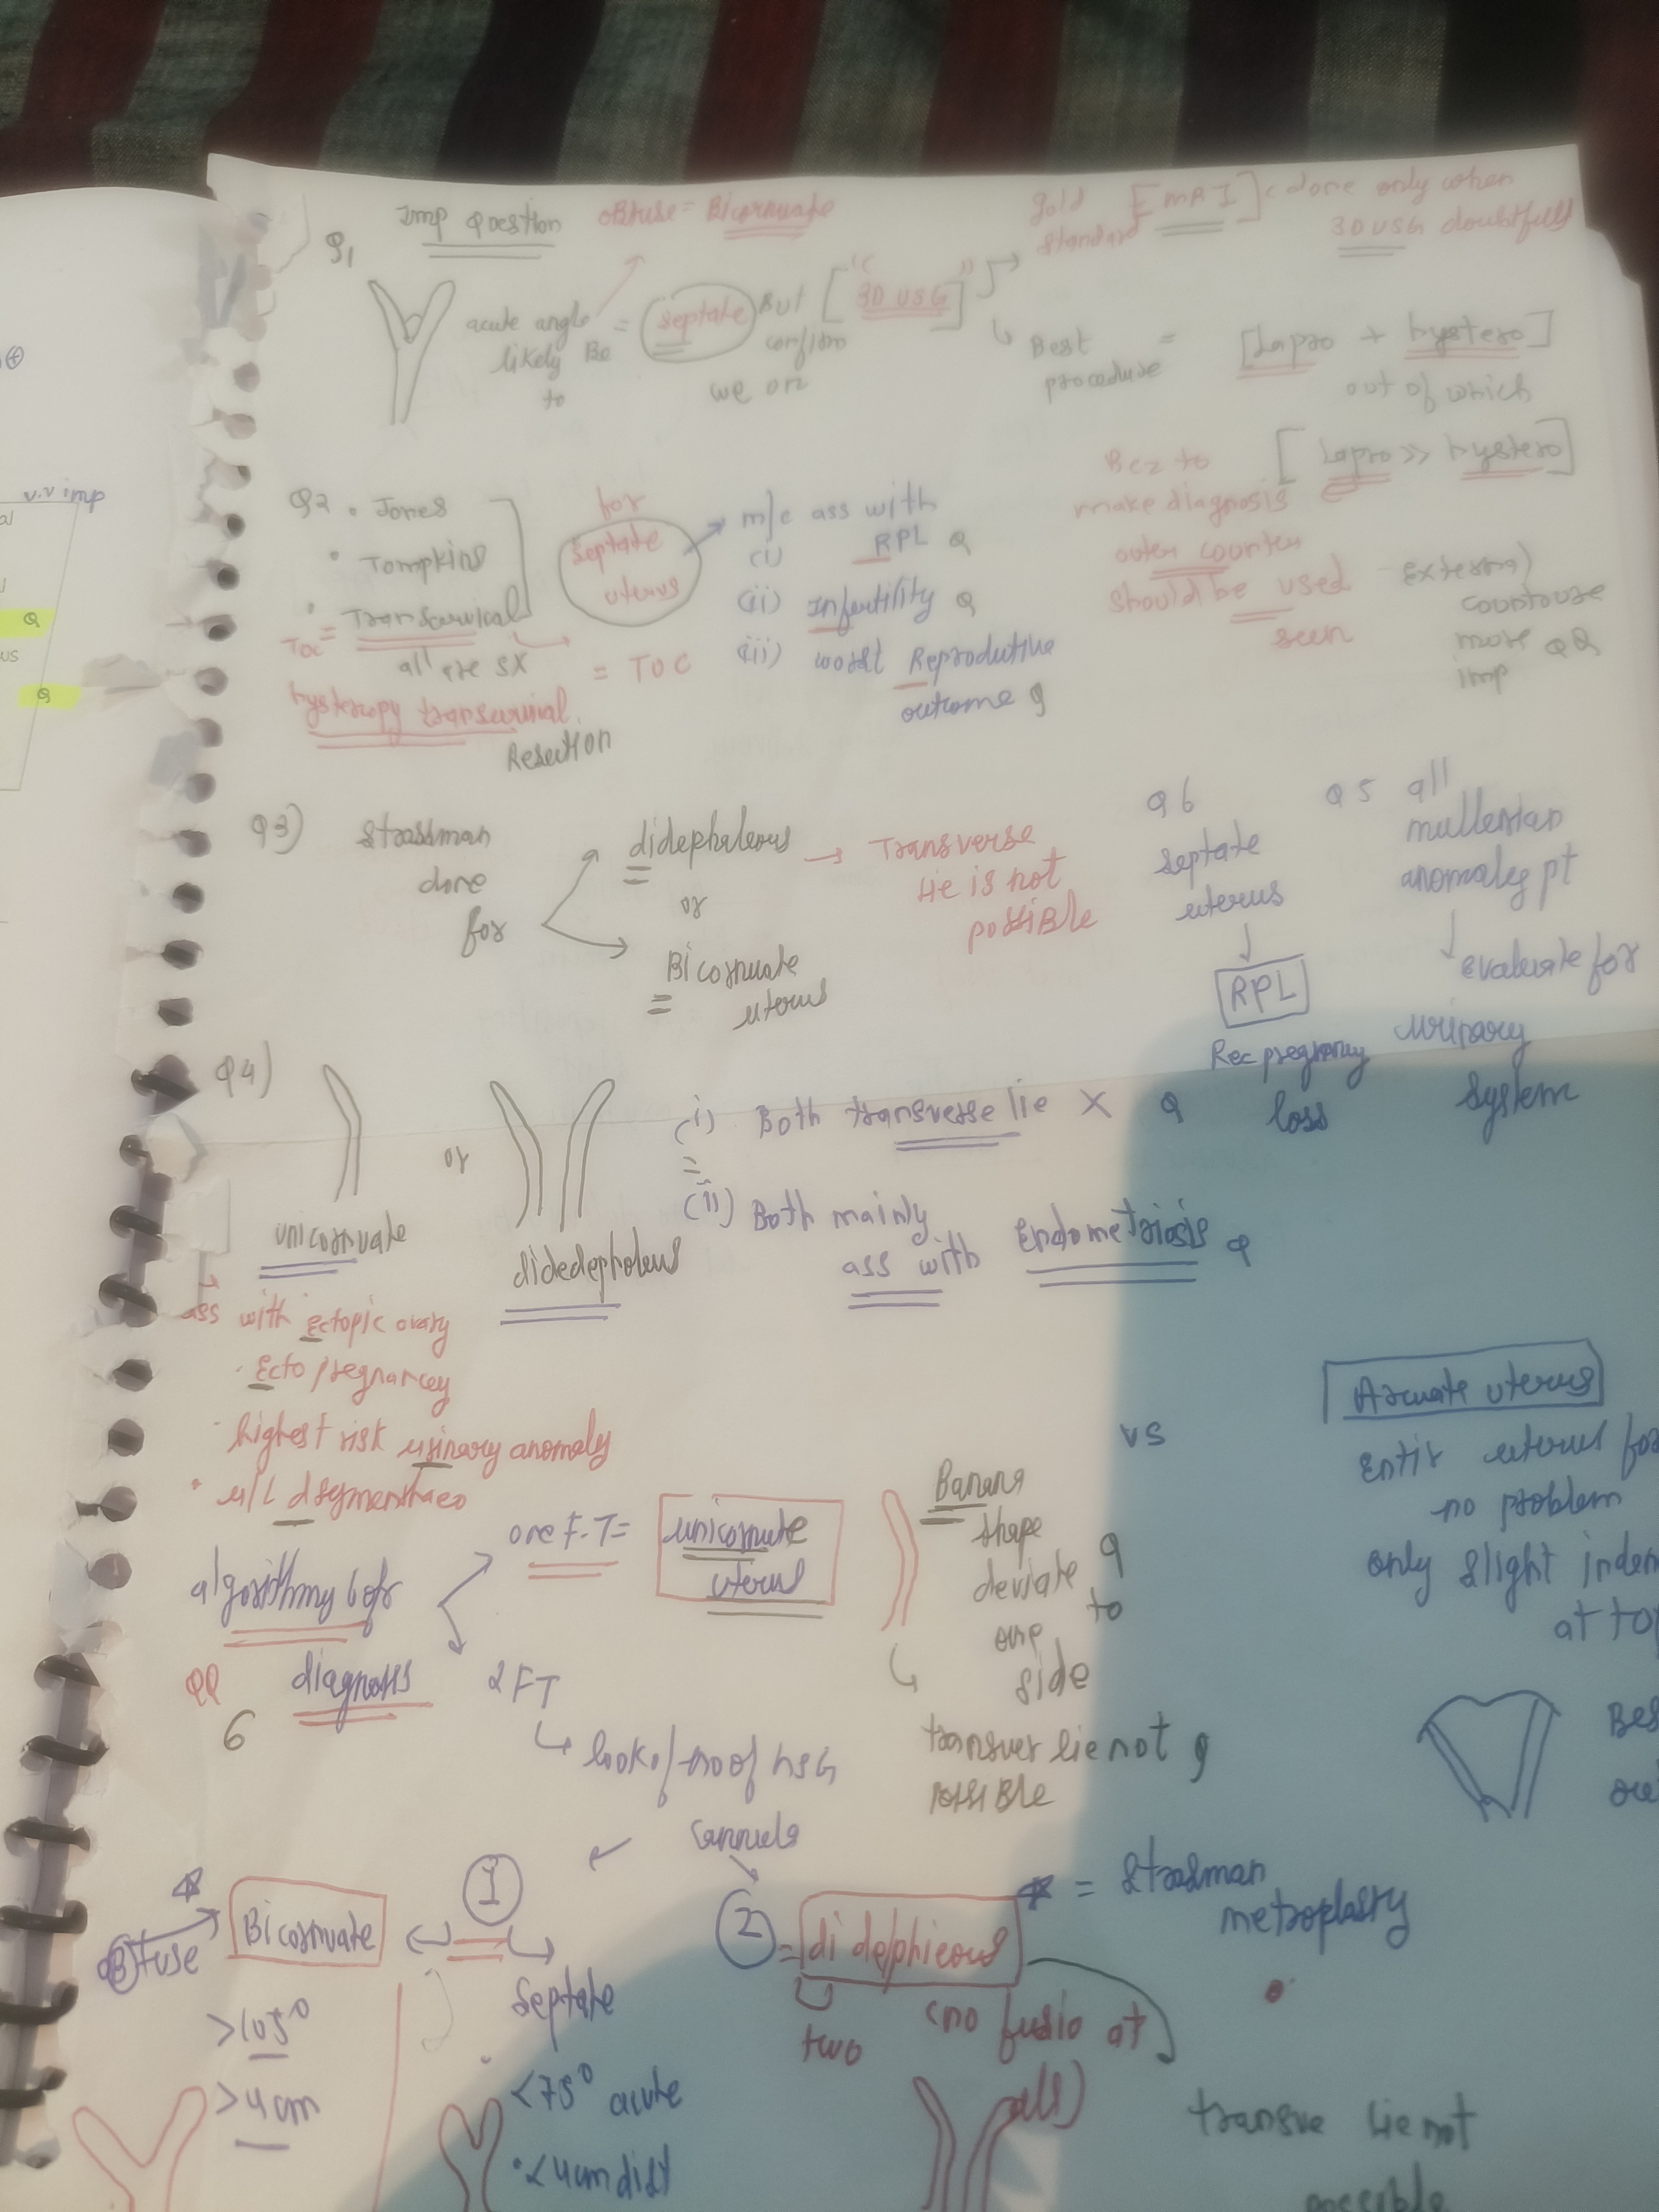 Imp Question
Q1
obtuse = Bicornuate
acute angle
likely Be
to
= septate
But
confirm
we on
["3D USG"]
gold
standard
[MRI] < done only when
3D USG doubtfull
Best
procedure
= [Lapro + hystero]
out of which
[Lapro >> hystero]
Bcz to
make diagnosis
outer counter
should be used
seen
External
more QQ
imp
Q2 • Jones
• Tompkins
• Transcurvical
all are SX
TOC =
hysteropy transcurvial
Resection
= TOC
for
septate
uterus
m/c ass with
(i) RPL Q
(ii) Infertility Q
(iii) worst Reprodutive
outcome Q
Q3) strassman
done
for
didephalerus
or
Bicornuate
uterus
→ Transverse
lie is not
possible
Q6
septate
uterus
RPL
Rec pregnancy
loss
Q5 all
mullerian
anomaley pt
Evaluate for
urinary
system
Q4)
unicornuate
or
didedepholeus
(i) Both transverse lie X Q
(ii) Both mainly
ass with Endometriosis Q
ass with Ectopic ovary
• Ecto pregnancey
• highest risk urinary anomaly
• u/L
algorithmy
QQ diagnosis
6
one F.T =
unicornute
uterus
2 FT
no of HSG
cannels
Banana
shape
deviate Q
to
one
side
transver lie not Q
possible
vs
Arcuate uterus
Entir uterus for
no problem
only slight inden
at top
Bes
ou
obtuse
Bicornuate
>105°
>4cm
1
septate
<75° acute
• <4cm dist
2 = didelphieous
two
(no fusio at
all)
= strasman
metroplasty
transve lie not
possible
v.v imp
al
Q
us
Q